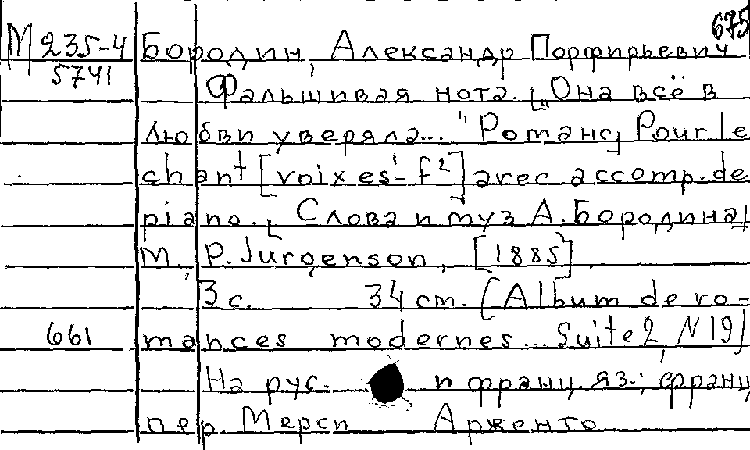 675
М 235-4 Бородин, Александр Порфирьевич
5741
Фальшивая нота. [„Она всё в
любви уверяла..." Романс] Pour le
chant [voix es¹-f²] avec accomp. de
piano. [Слова и муз А. Бородина]
М., P. Jurgenson, [1885].
3 с. 34 cm. (Album de ro-
661 mances modernes... Suite 2, N 19)
На рус. и франц. яз.; франц
пер. Мерси Аржанто